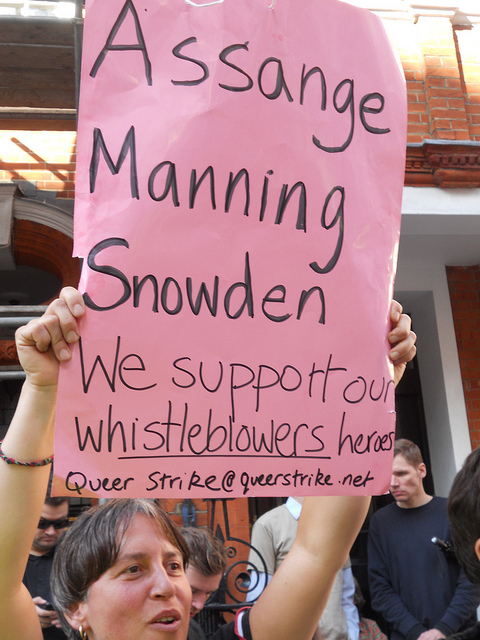 Assange
Manning
Snowden
We support our
whistleblowers heroes
Queer Strike@queerstrike.net